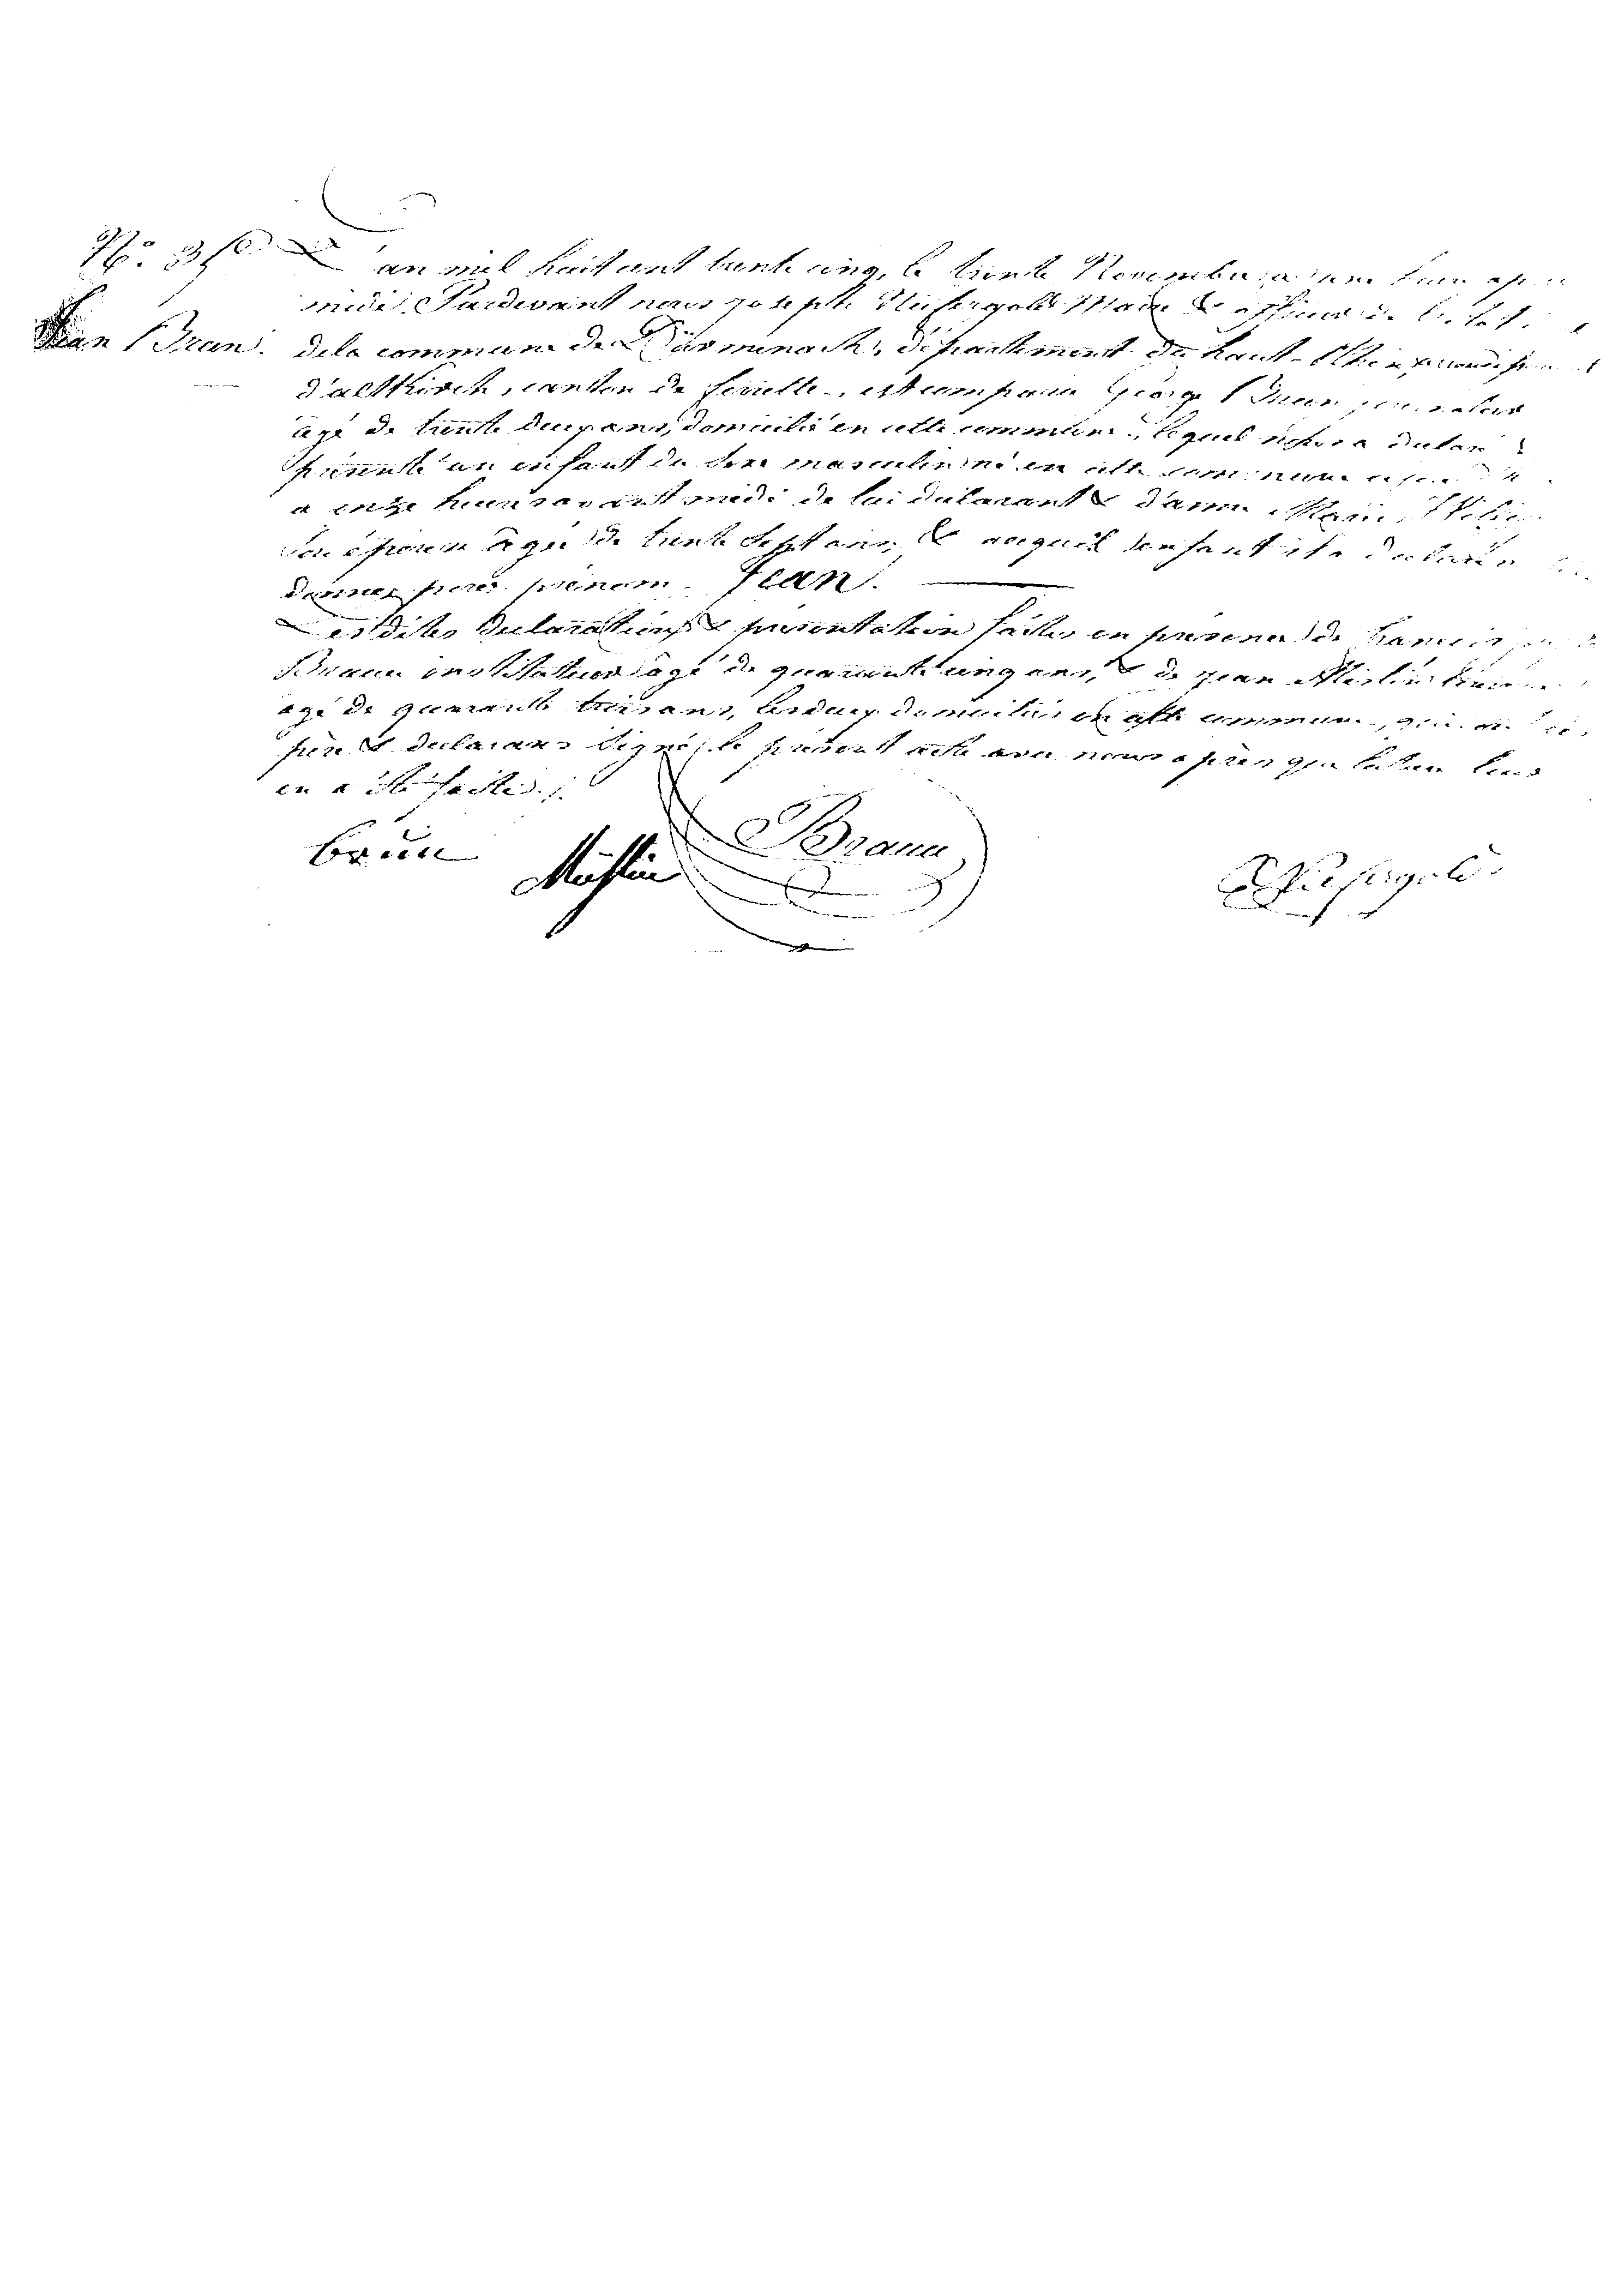 N.o 35
L'an mil huit cent trente cinq, le trente Novembre, a une heure après
Jean Brun.
midi. Pardevant nous joseph Maire & officier de l'etat
dela commune de Dürmenach, département du haut-Rhin,
d'altkirch, canton de ferrette, est comparu George Brun journalier
âgé de trente deux ans, domicilié en cette commune, lequel nous a declaré &
présenté un enfant du sexe masculin né en cette commune
a onze heures avant midi de lui déclarant & d'anne Marie
son épouse âgée de trente sept ans, & auquel enfant il a déclaré
donner pour prénom Jean.
Lesdites déclarations & présentation faites en présence de françois
Braun instituteur âgé de quarante cinq ans, & de jean Mislin
âgé de quarante trois ans, les deux domiciliés en cette commune, qui ont
père & déclarans signé le présent acte avec nous après que lecture leur
en a été faite.
brun
Mislin
Braun